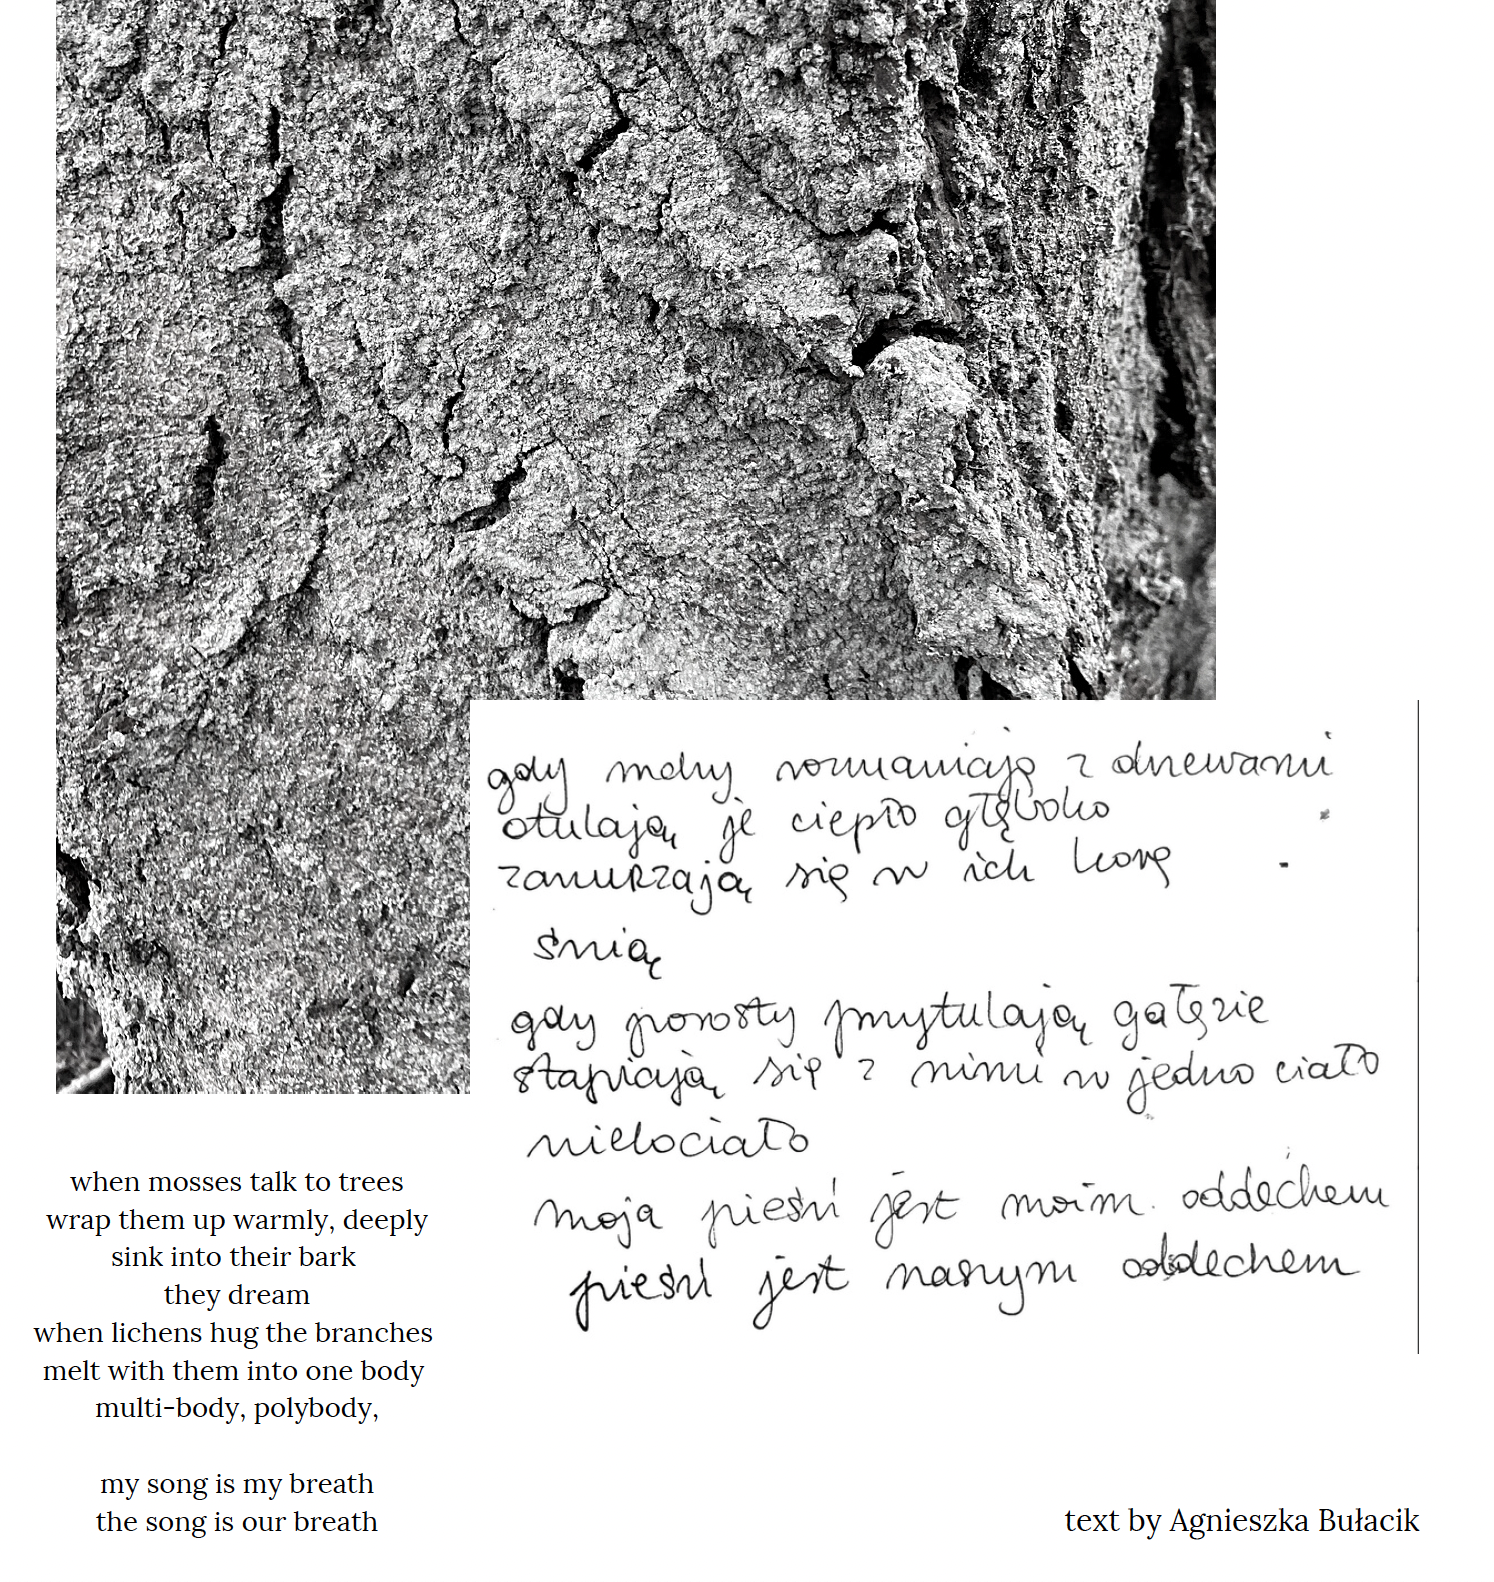 gdy mchy rozmawiają z drzewami
otulają je ciepło głęboko
zanurzają się w ich korę
śnią
gdy porosty przytulają gałęzie
stapiają się z nimi w jedno ciało
wielociało
moja pieśń jest moim oddechem
pieśń jest naszym oddechem
when mosses talk to trees
wrap them up warmly, deeply
sink into their bark
they dream
when lichens hug the branches
melt with them into one body
multi-body, polybody,
my song is my breath
the song is our breath
text by Agnieszka Bułacik